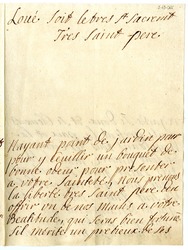 Loué Soit le tres St Sacremt
Tres Saint pere
Nayant point de jardin pour
pour y ceuillir un bouquet de
bonne odeur pour presenter
a votre Sainteté, nous prenons
la liberté tres Saint pere, den
offrir un de nos mains a votre
Beatitude, qui sera bien
Sil merite un pretieux de ses